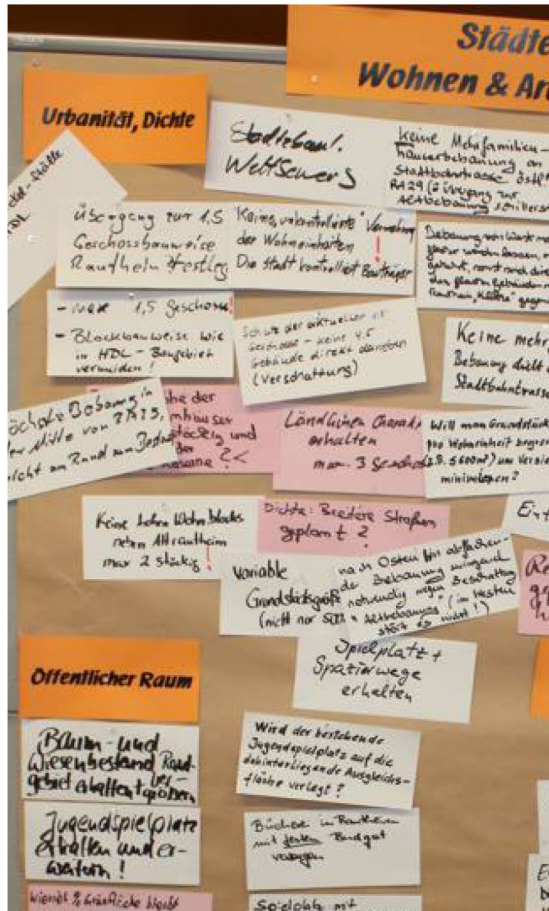 Städte
Wohnen & Ar
Urbanität, Dichte
Städtebaul.
Wettbewerb
Keine Mehrfamilien-
hausbebauung an
Stadtbahntrasse östl.
RA29 (Übergang zur
Altbebauung Schillerst
Übergang zur 1,5
Geschossbauweise
Rautheim festleg
Keine "unkontrollierte" Vermehrung
der Wohneinheiten
Die Stadt kontrolliert Bauträger
!
- max 1,5 Geschosse!
- Blockbauweise wie
in HDL - Baugebiet
vermeiden!
Schutz der aktuellen 1.5
Geschosse - keine 4.5
Gebäude direkt daneben
(Verschattung)
Keine mehr
Bebauung direkt a
Stadtbahntrasse
höchste Bebauung in
der Mitte von RA29,
nicht am Rand zum Bestand
he der
mhäuser
stöckig und
der
? <
Ländlichen Charakt
erhalten
max. 3 Geschoss
Will man Grundstück
pro Wohneinheit begren
(z.B. ≤600m²) um Versie
minimieren?
Ent
Keine hohen Wohnblocks
neben Altrautheim
max 2 stöckig!
Dichte: Breitere Straßen
geplant?
Variable
Grundstücksgröße
(nicht nur 500
nach Osten hin abflachen-
de Bebauung zwingend
notwendig wegen Beschattung
Altbebauung (im Westen
stört es nicht!)
Spielplatz +
Spazierwege
erhalten
Öffentlicher Raum
Baum- und
Wiesenbestand Rand-
gebiet erhalten + ver-
größern
Wird der bestehende
Jugendspielplatz auf die
dahinterliegende Ausgleichs-
fläche verlegt?
Jugendspielplatz
erhalten und er-
weitern!
Bücherei in Rautheim
mit festen Budget
versorgen
Wieviel % Grünfläche bleibt
Spielplatz mit